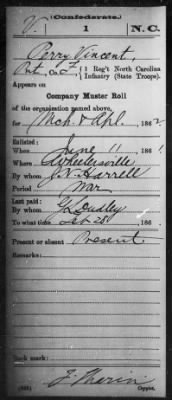 (Confederate.)
V. 1 N.C.
Perry Vincent,
Pvt., Co. F, 1 Reg't North Carolina
Infantry (State Troops).
Appears on
Company Muster Roll
of the organization named above,
for Mch & Apl., 1862
Enlisted:
When June 11, 186
Where
By whom J. N. Harrell
Period War
Last paid:
By whom Dudley
To what time Feb 28, 186
Present or absent Present
Remarks:
Book mark:
Copyist.